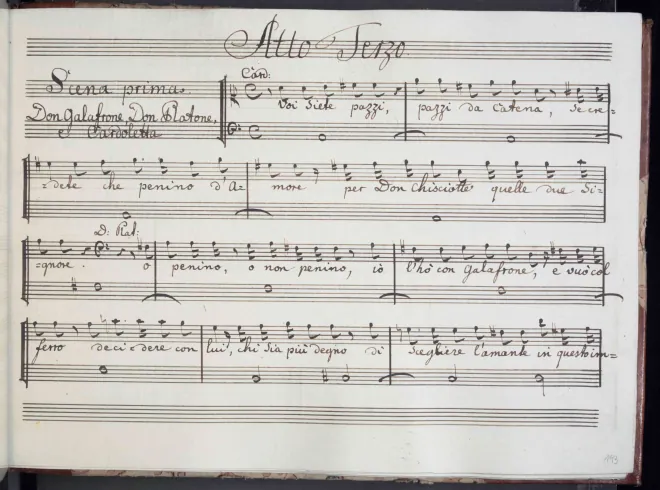 Atto Terzo.
Scena prima.
Don Galafrone, Don Platone,
e Cardoletta
Card:
Voi siete pazzi, pazzi da catena, se cre=
=dete che penino d'A= more per Don Chisciotte quelle due Si=
D: Plat:
=gnore. o penino, o non penino, iò l'hò con Galafrone, e vuò col
ferro decidere con lui, chi sia più degno di scegliere l'amante in questo im=
193